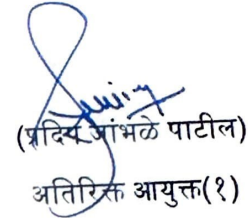 (प्रदिप जांभळे पाटील)
अतिरिक्त आयुक्त(१)